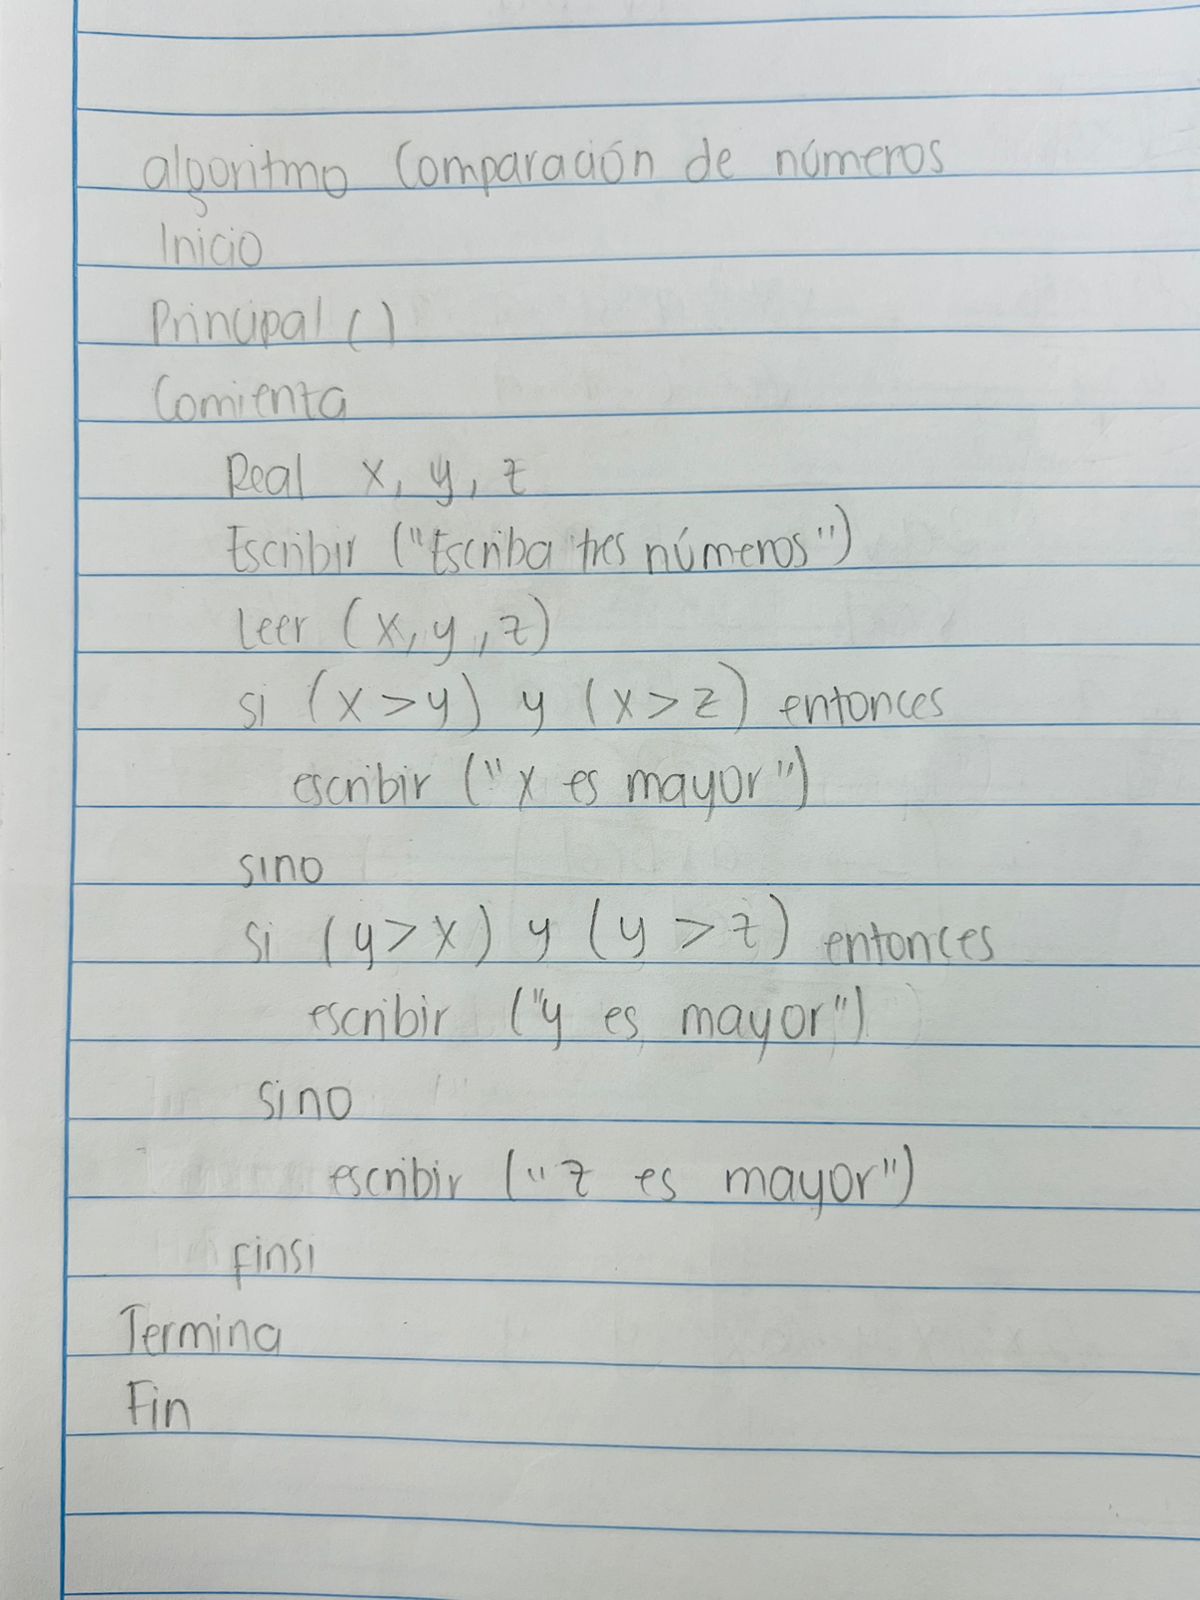 algoritmo Comparación de números
Inicio
Principal ( )
Comienta
Real x, y, z
Escribir ("Escriba tres números")
Leer (x, y, z)
si (x > y) y (x > z) entonces
escribir ("x es mayor")
sino
si (y > x) y (y > z) entonces
escribir ("y es mayor")
sino
escribir ("z es mayor")
finsi
Termina
Fin